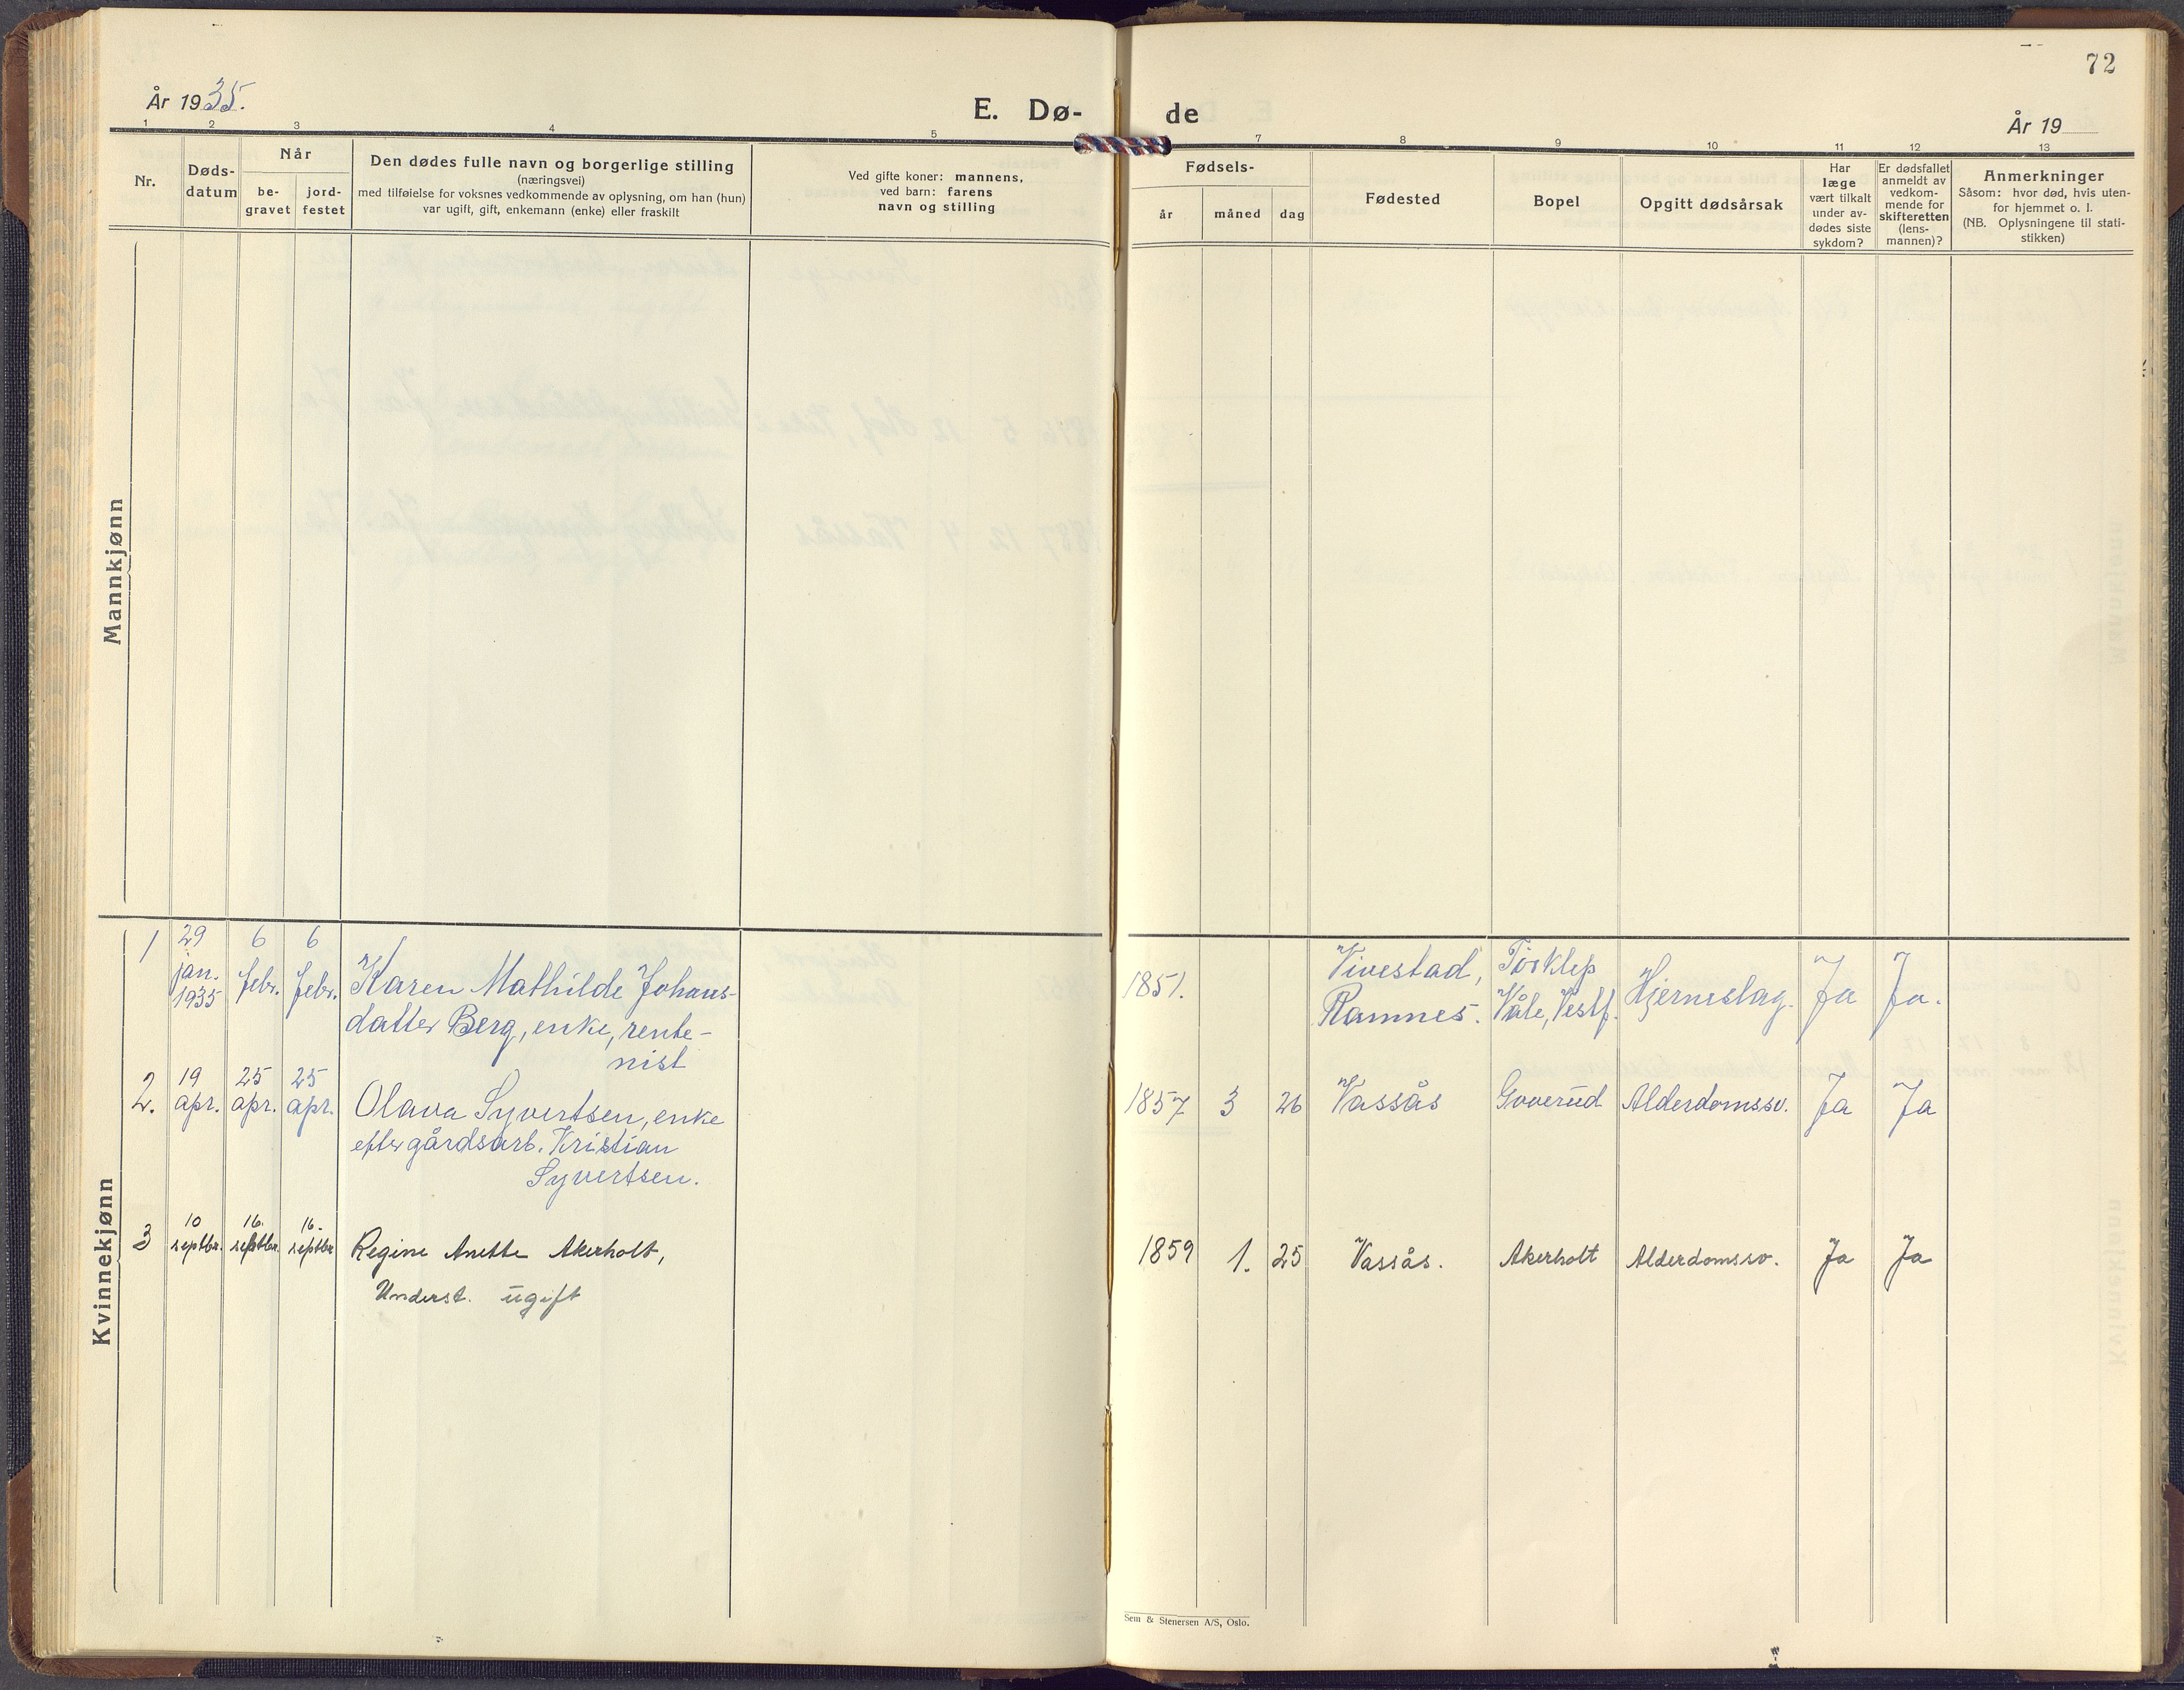 72
År 1935.
E. Dø-
de
År 19
1 2 3 4 5 7 8 9 10 11 12 13
Nr.
Døds-
datum
Når
be-
gravet
jord-
festet
Den dødes fulle navn og borgerlige stilling
(næringsvei)
med tilføielse for voksnes vedkommende av oplysning, om han (hun)
var ugift, gift, enkemann (enke) eller fraskilt
Ved gifte koner: mannens,
ved barn: farens
navn og stilling
Fødsels-
år måned dag
Fødested
Bopel
Opgitt dødsårsak
Har
læge
vært tilkalt
under av-
dødes siste
sykdom?
Er dødsfallet
anmeldt av
vedkom-
mende for
skifteretten
(lens-
mannen)?
Anmerkninger
Såsom: hvor død, hvis uten-
for hjemmet o. l.
(NB. Oplysningene til stati-
stikken)
Mannkjønn
Kvinnekjønn
1
29
jan.
1935
6
febr.
6
febr.
Karen Mathilde Johans-
datter Berg, enke, rente-
nist
1851.
Vivestad,
Ramnes.
Torklep
Våle, Vestf.
Hjerneslag.
Ja
Ja.
2.
19
apr.
25
apr.
25
apr.
Olava Syvertsen, enke
efter gårdsarb. Kristian
Syvertsen.
1857 3 26
Vassås
Goverud
Alderdomssv.
Ja
Ja
3
10
septbr.
16.
septbr.
16.
septbr
Regine Anette Akerholt,
Underst. ugift
1859 1. 25
Vassås.
Akerholt
Alderdomssv.
Ja
Ja
Sem & Stenersen A/S, Oslo.